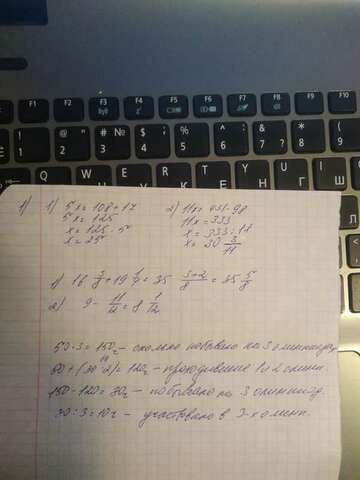 F1 F2 F3 F4 F5 F6 F7 F8 F9 F10
! 1 " 2 № # 3 ; $ 4 % 5 : 6 ? 7 * 8 ( 9
1) 1) 5x = 108+17 2) 11x = 431-98
5x = 125 11x = 333
x = 125 : 5 x = 333 : 11
x = 25 x = 30 3/11
1) 16 3/8 + 19 1/4 = 35 3+2/8 = 35 5/8
2) 9 - 11/12 = 8 1/12
50·3=150 - сколько побывало на 3 олимпиадах
60+(30·2)=120 - 1 и 2
150-120=30 - побывало на 3 олимпиад.
30:3=10 - участвовало в 3-х олимп.